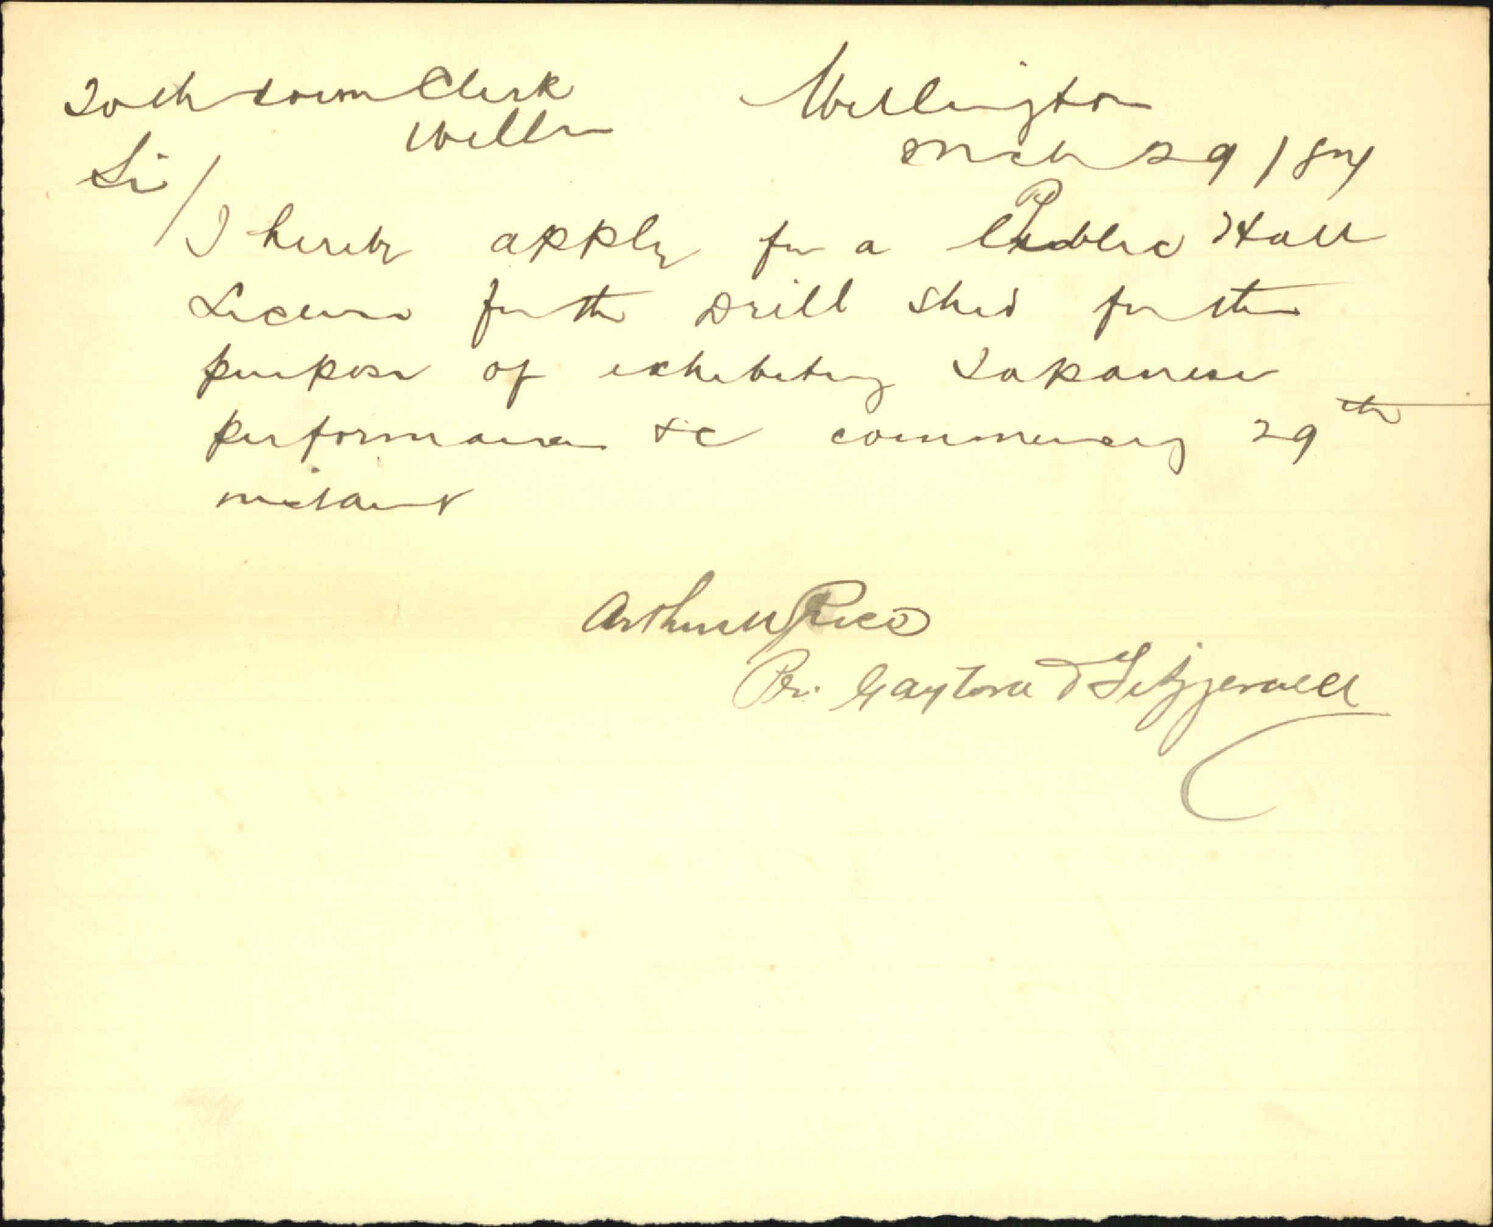 To the Town Clerk
Wellin
Wellington
Mch 29/84
Sir/
I hereby apply for a Public Hall
License for the Drill Shed for the
purpose of exhibiting Japanese
performance &c commencing 29th
instant
Arthur Rico
Per: Gaytora Fitzgerald